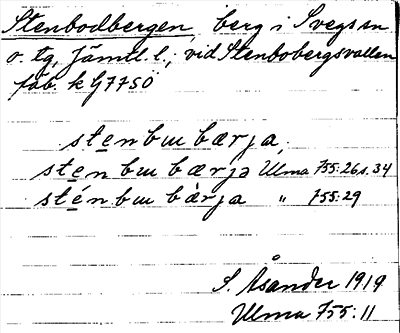 Stenbodbergen, berg i Svegs sn
o. tg, Jämtl. l.; vid Stenbobergsvallen
fäb. k G77SÖ
stenbɯbærja,
stenbɯbærja Ulma 755:26 s. 34
sténbɯbærja " 755:29
S. Åsander 1919
Ulma 755:11